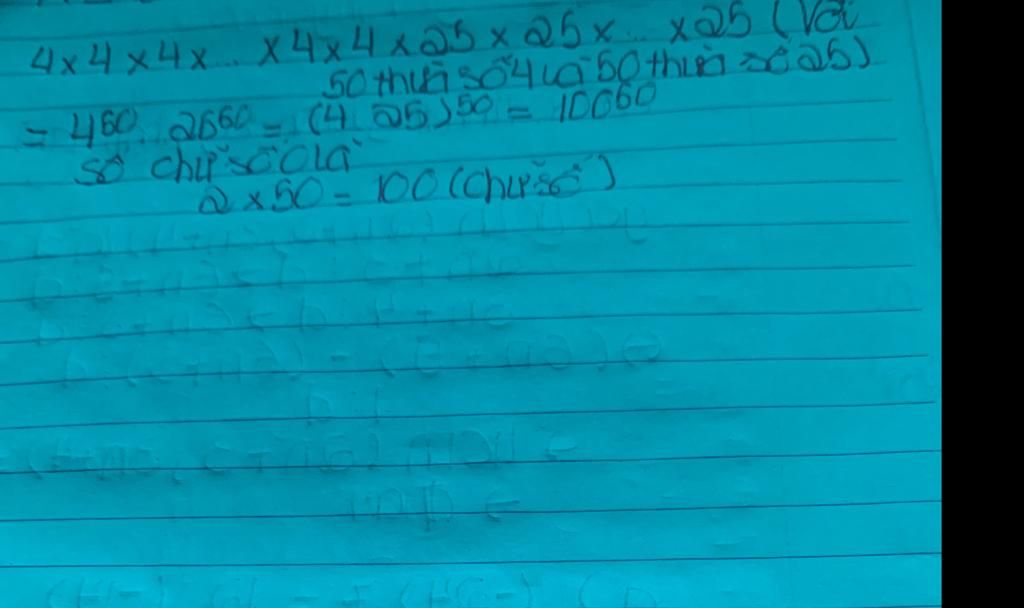 4 x 4 x 4 x ... x 4 x 4 x 25 x 25 x ... x 25 (Với
50 thừa số 4 và 50 thừa số 25)
= 4⁵⁰. 25⁵⁰ = (4. 25)⁵⁰ = 100⁵⁰
Số chữ số 0 là
2 x 50 = 100 (chữ số)